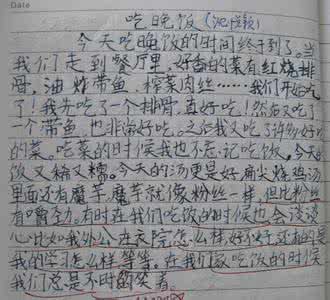 Date
吃晚饭(记段)
今天吃晚饭的时间终于到了。当
我们走到餐厅里,好香的菜有红烧排
骨,油炸带鱼,榨菜肉丝……我们开始吃
了!我先吃了一个排骨,真好吃!然后又吃了
一个带鱼,也非常好吃。之后我又吃了许多好吃
的菜。吃菜的时候我也不忘记吃饭。今天的
饭又稀又糯。今天的汤更是好,扁尖烧鸡汤
里面还有魔芋。魔芋就像粉丝一样,但比粉丝
有嚼劲。有时在我们吃饭的时候也会谈谈
心比如我外公在医院怎么样,好不好,还有的是
我的学习怎么样等等,在我们吃饭的时候
我们总是不时的笑着。